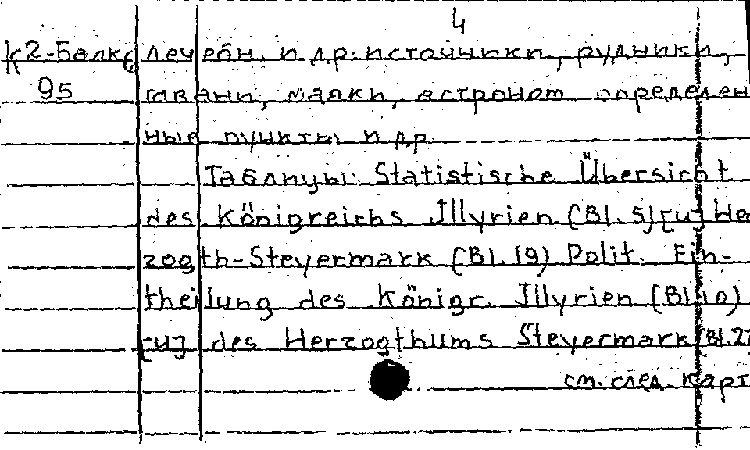 4
К2-Балк, лечебн. и др. источники, рудники,
95 гавани, маяки, астроном. определен
ные пункты и др.
Таблицы: Statistische Übersicht
des Königreichs Illyrien (Bl. 5) [и] He
zogth-Steyermark (Bl. 19) Polit. Ein-
theilung des Königr. Illyrien (Bl. 10)
[и] des Herzogthums Steyermark (Bl. 27
см. след. карт